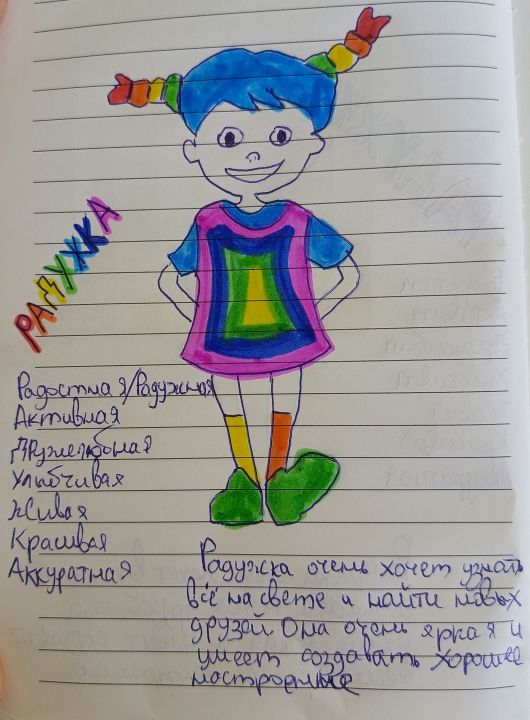 РАДУЖКА
Радостная/Радужная
Активная
Дружелюбная
Улыбчивая
Живая
Красивая
Аккуратная
Радужка очень хочет узнать
всё на свете и найти новых
друзей. Она очень яркая и
умеет создавать хорошее
настроение